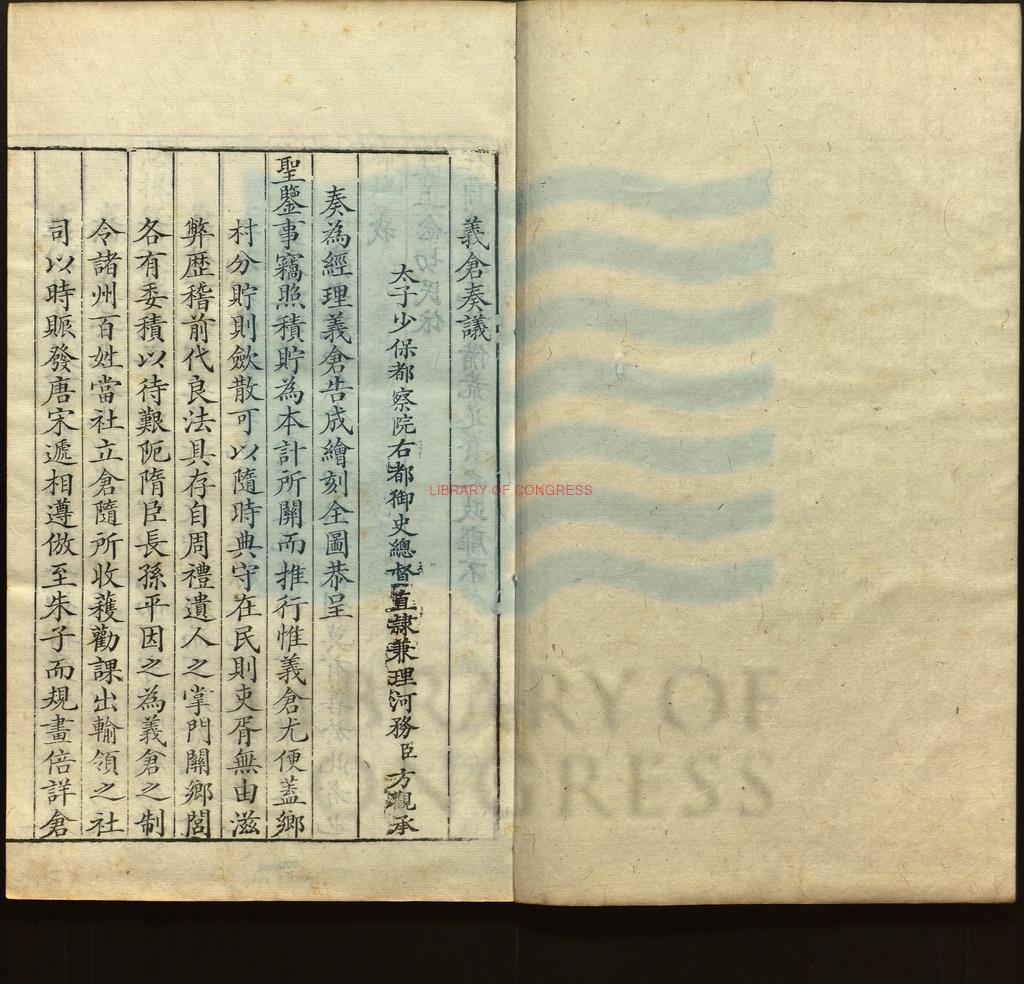 義倉奏議
太子少保都察院右都御史總督直隷兼理河務臣方觀承
奏為經理義倉告成繪刻全圖恭呈
聖鑒事竊照積貯為本計所關而推行惟義倉尤便蓋鄉
村分貯則歛散可以隨時典守在民則吏胥無由滋
弊歴稽前代良法具存自周禮遺人之掌門關鄉閭
各有委積以待艱阨隋臣長孫平因之為義倉之制
令諸州百姓當社立倉隨所收蓡勸課出輸領之社
司以時賑發唐宋遞相遵倣至朱子而規畫倍詳倉
LIBRARY OF CONGRESS
LIBRARY OF
CONGRESS